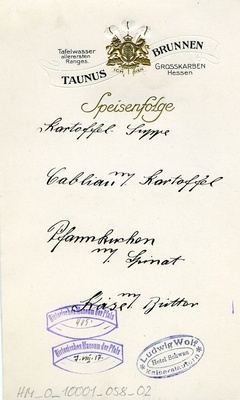 Tafelwasser
allerersten
Ranges.
TAUNUS BRUNNEN
GROSSKARBEN
Hessen
Speisenfolge
Kartoffel Suppe
Cabliau m/ Kartoffel
Pfannkuchen
m/ Spinat
Käse m/ Butter
Historisches Museum der Pfalz
Historisches Museum der Pfalz
Ludwig Wolf
Hotel Schwan
Kaiserslautern
HM_0_10001_058_02